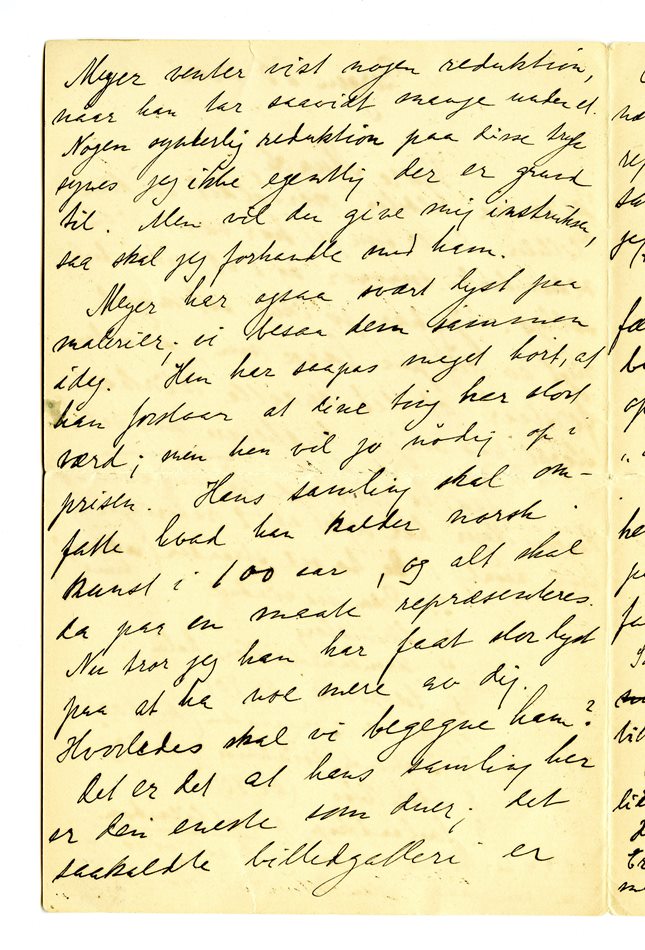 Meyer venter vist nogen reduktion,
naar han tar saavidt mange under et.
Nogen synderlig reduktion paa disse tryk
synes jeg ikke egentlig der er grund
til. Men vil du give mig instruksen,
saa skal jeg forhandle med ham.
Meyer har ogsaa svært lyst paa
malerier; vi besaa dem sammen
idag. Han har saapas meget hørt, at
han forstaar at dine ting har stort
værd; men han vil jo nødig op i
prisen. Hans samling skal om-
fatte hvad han kalder norsk
kunst i 100 aar, og alt skal
da paa en maate repræsenteres.
Nu tror jeg han har faat stor lyst
paa at ha noe mere av dig.
Hvorledes skal vi begegne ham?
Det er det at hans samling her
er den eneste som duer; det
saakaldte billedgalleri er
nø
re
sa
je
fø
b
op
he
p
fa
bil
lid
Er
m